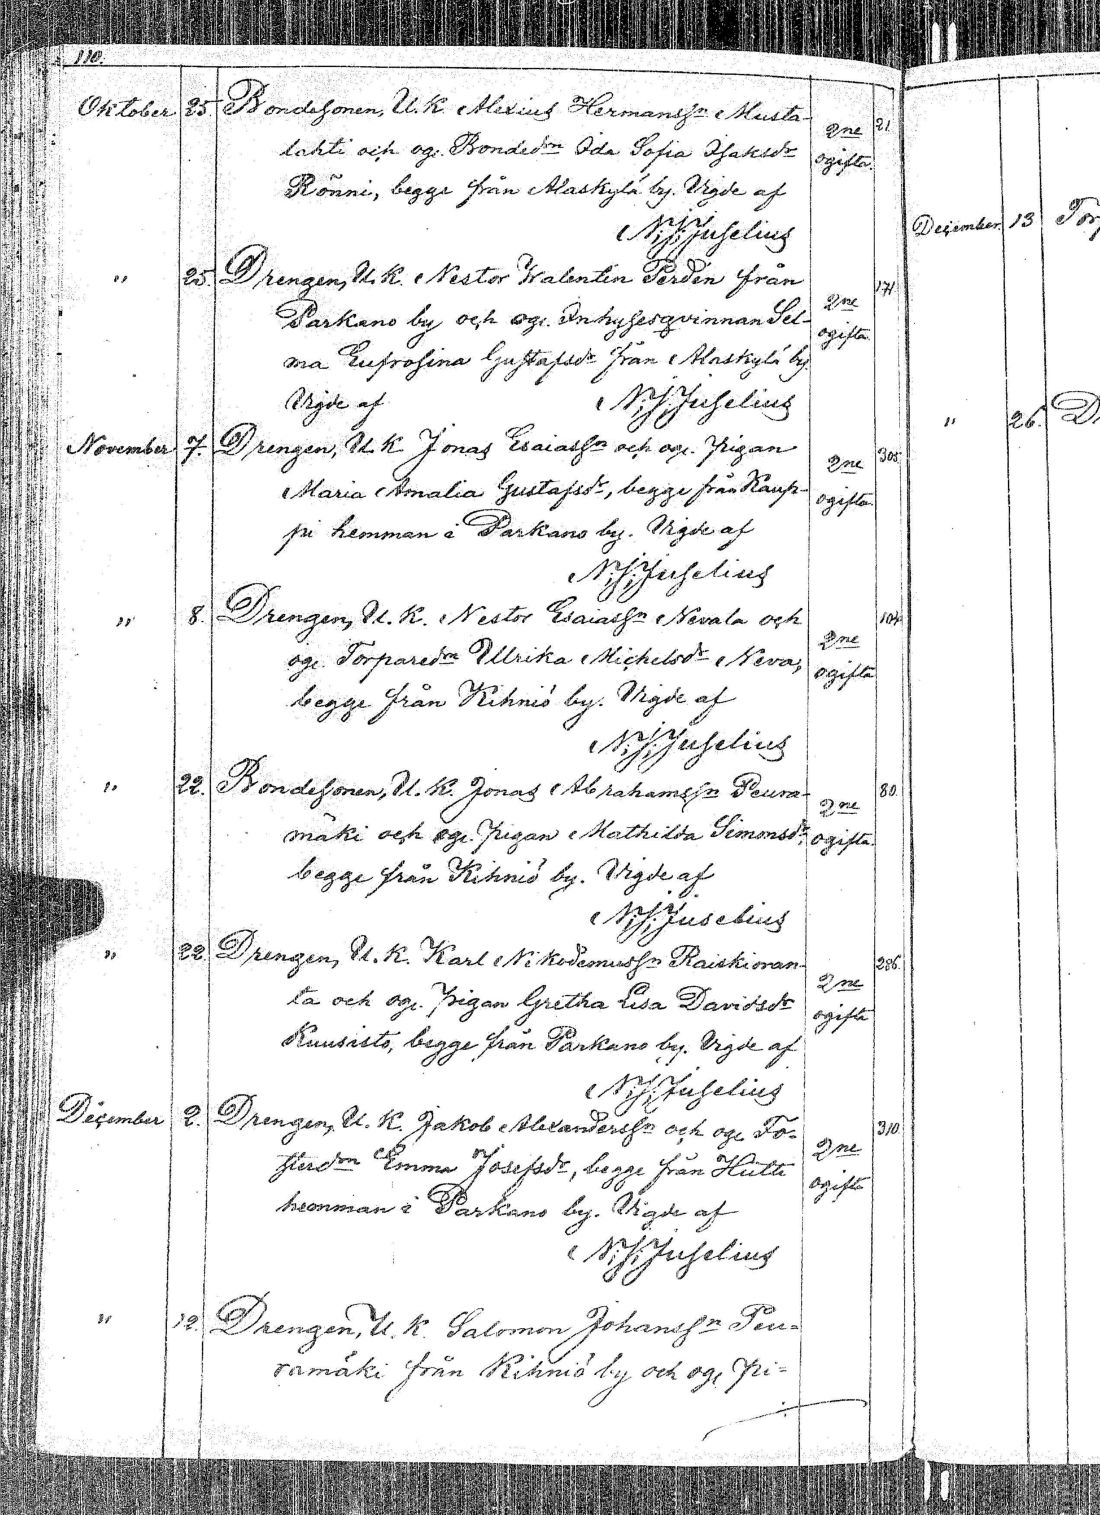 110.
Oktober 25. Bondesonen, U. K. Alexius Hermanssn Musta- 2ne 21
lahti och og. Bondedrn Ida Sofia Isaksdr ogifta.
Rönni, begge från Alaskylä by. Vigde af
N. J. Juselius
" 25. Drengen, U. K. Nestor Walentin Perdén från 2ne 171.
Parkano by och og. Inhysesqvinnan Sel- ogifta.
ma Eufrosina Gustafsdr från Alaskylä by.
Vigde af N. J. Juselius
November 7. Drengen, U. K. Jonas Esaiassn och og. pigan 2ne 305.
Maria Amalia Gustafsdr, begge från Kaup- ogifta.
pi hemman i Parkano by. Vigde af
N. J. Juselius
" 8. Drengen, U. K. Nestor Esaiassn Nevala och 2ne 104.
og. Torparedrn Ulrika Michelsdr Neva, ogifta
begge från Kihniö by. Vigde af
N. J. Juselius
" 22. Bondesonen, U. K. Jonas Abrahamssn Peura- 2ne 80.
mäki och og. pigan Mathilda Simonsdr, ogifta.
begge från Kihniö by. Vigde af
N. J. Juselius
" 22. Drengen, U. K. Karl Nikodemussn Raiskioran- 2ne 286.
ta och og. pigan Gretha Lisa Davidsdr ogifta
Kuusisto, begge från Parkano by. Vigde af
N. J. Juselius
December 2. Drengen, U. K. Jakob Alexanderssn och og. Fo- 2ne 310.
sterdrn Emma Josefsdr, begge från Hutti ogifta
hemman i Parkano by. Vigde af
N. J. Juselius
" 12. Drengen, U. K. Salomon Johanssn Peu-
ramäki från Kihniö by och og. pi-
December. 13 Torp
" 26. D